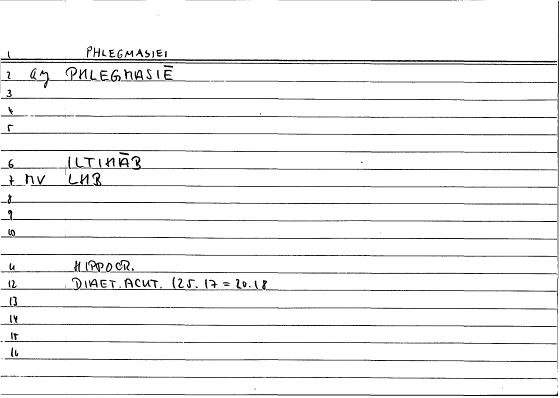 1 PHLEGMASIEI
2 ag PHLEGMASIĒ
3
4
5
6 ILTIHĀB
7 nv LHB
8
9
10
11 HIPPOCR.
12 DIAET.ACUT. 125.17 = 20.18
13
14
15
16